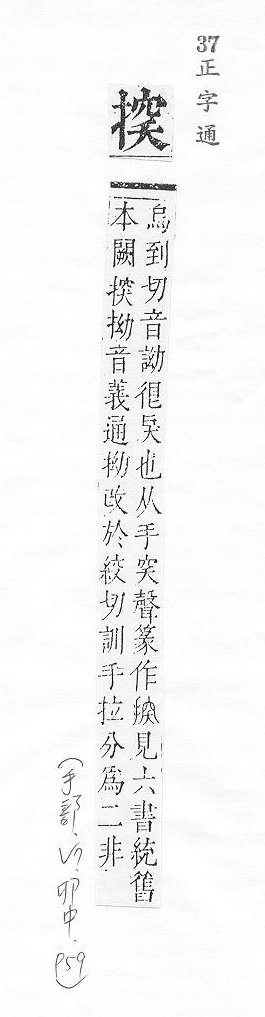 37 正字通
揬
烏到切音𧦝很戾也从手突聲篆作揬見六書統舊
本闕揬拗音義通拗改於絞切訓手拉分為二非
(手部、卯中、P59)